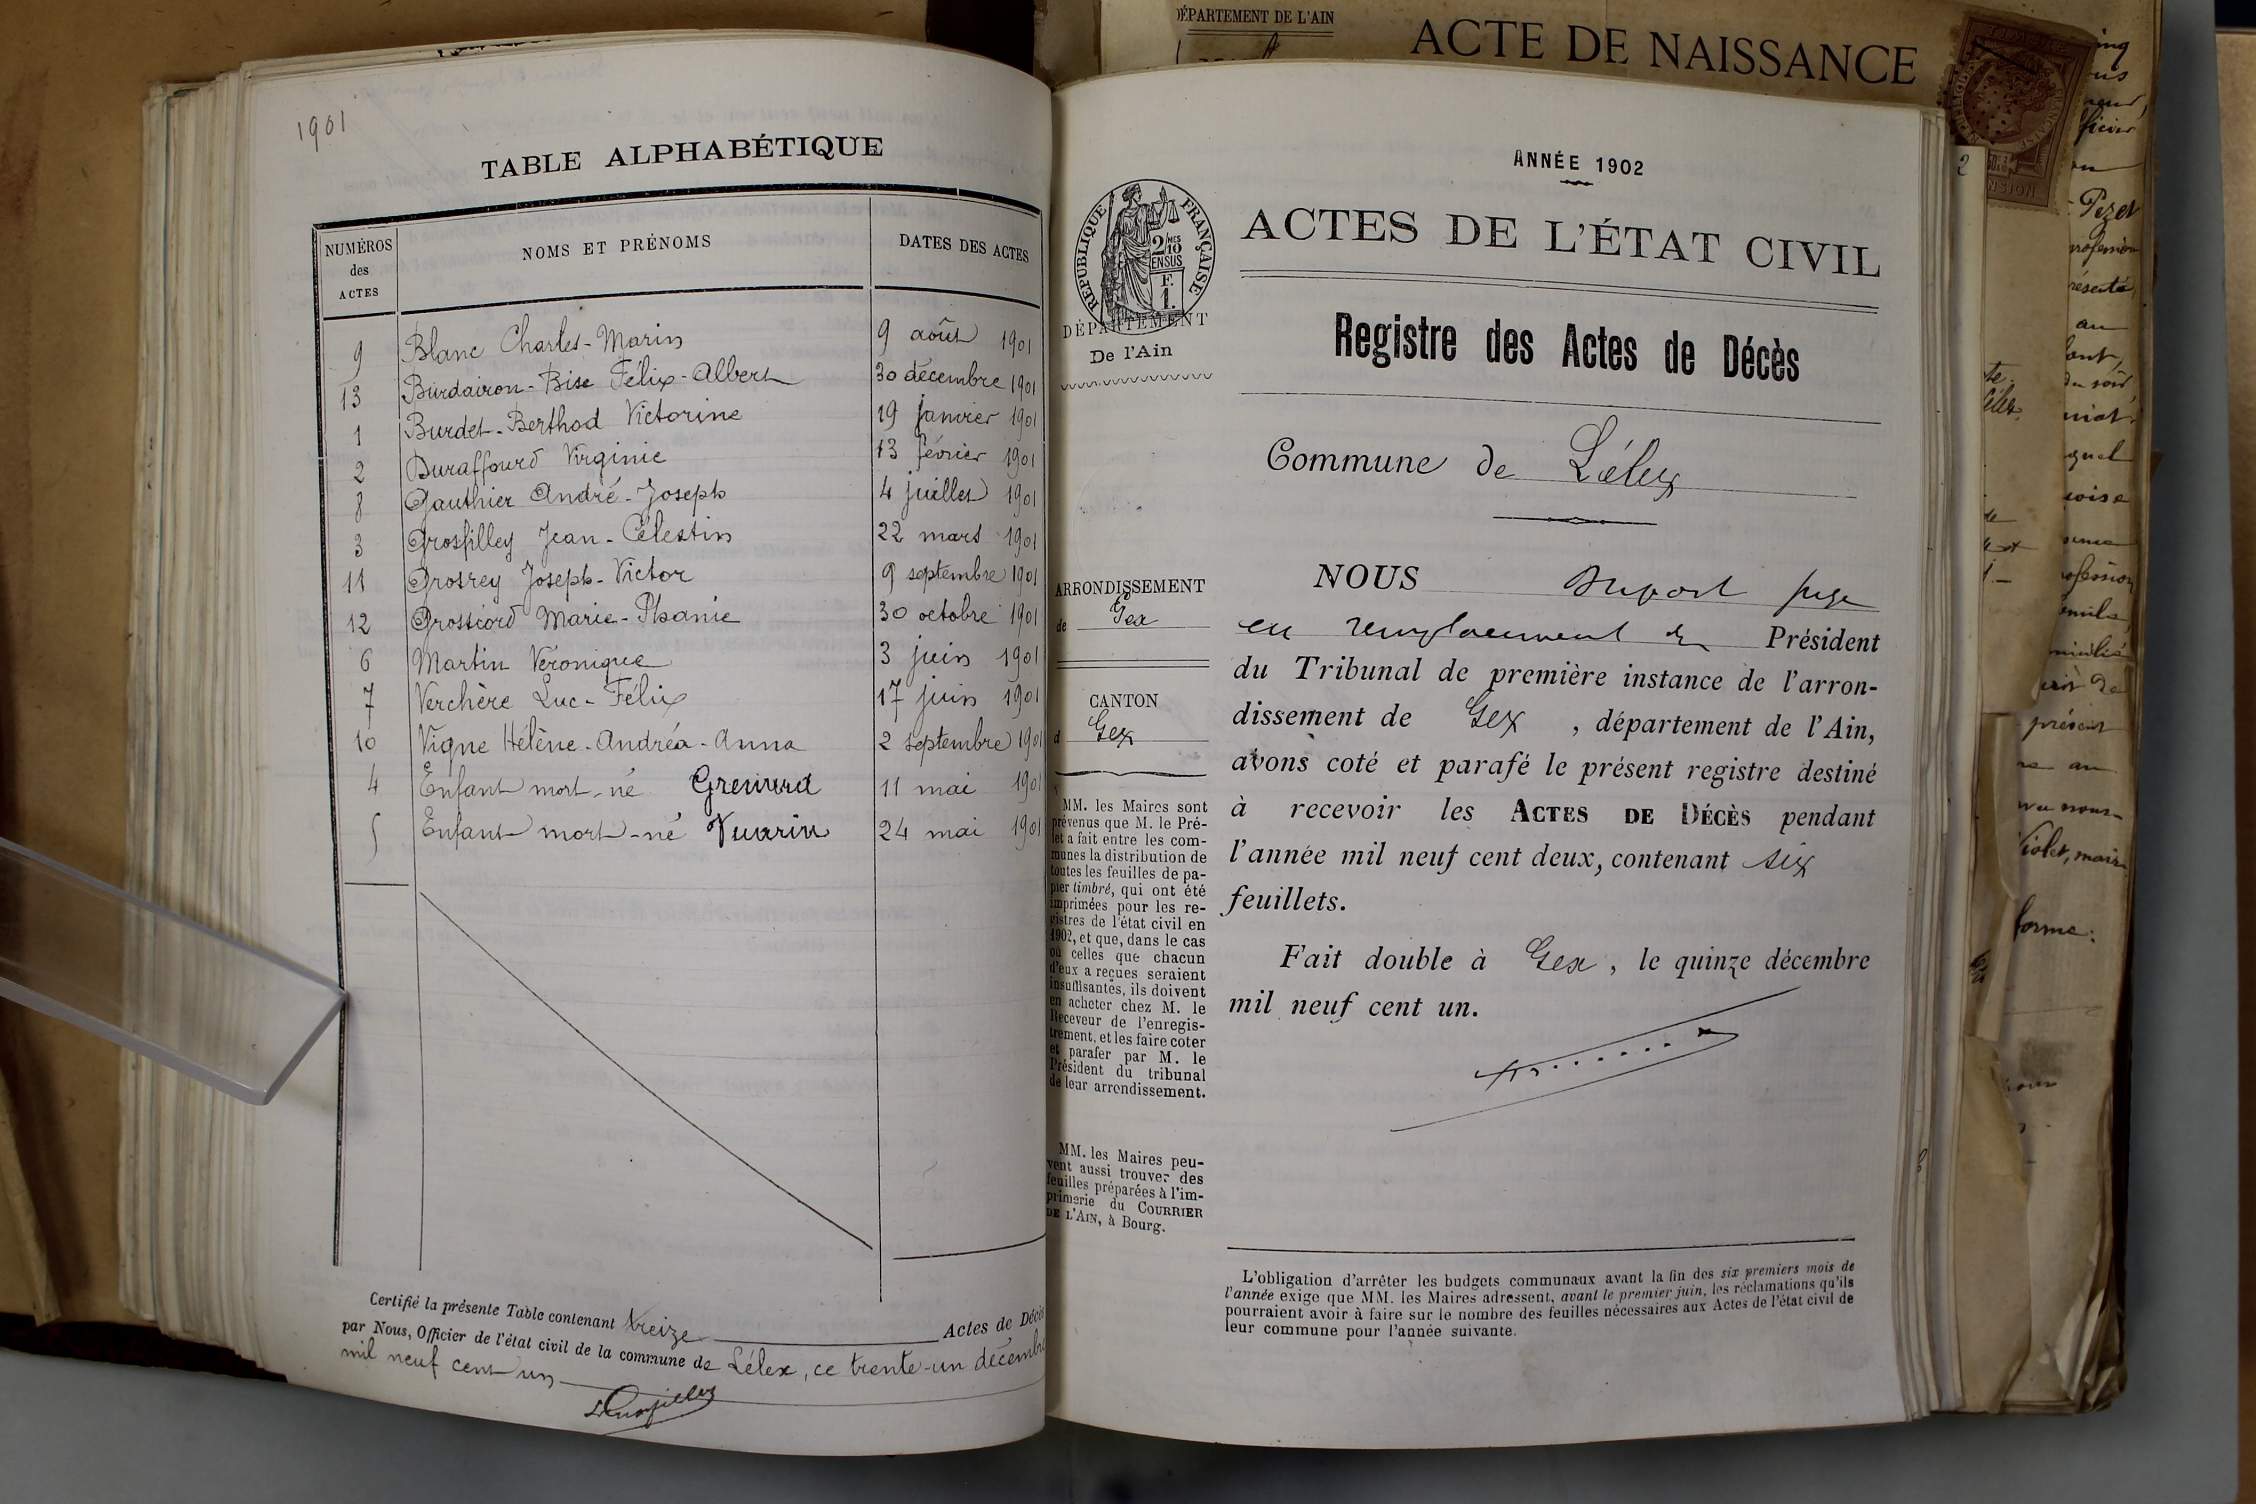 1901
TABLE ALPHABÉTIQUE
NUMÉROS
des
ACTES
NOMS ET PRÉNOMS
DATES DES ACTES
9 Blanc Charles-Marin 9 août 1901
13 Burdairon-Bise Félix-Albert 30 décembre 1901
1 Burdet-Berthod Victorine 19 janvier 1901
2 Duraffourd Virginie 13 février 1901
8 Gauthier André-Joseph 4 juillet 1901
3 Grosfilley Jean-Célestin 22 mars 1901
11 Grosrey Joseph-Victor 9 septembre 1901
12 Grossiord Marie-Phanie 30 octobre 1901
6 Martin Véronique 3 juin 1901
7 Verchère Luc-Félix 17 juin 1901
10 Vigne Hélène-Andréa-Anna 2 septembre 1901
4 Enfant mort-né Grenard 11 mai 1901
5 Enfant mort-né Vuarin 24 mai 1901
Certifié la présente Table contenant treize Actes de Décès
par Nous, Officier de l'état civil de la commune de Lélex, ce trente-un décembre
mil neuf cent un
DÉPARTEMENT DE L'AIN
ACTE DE NAISSANCE
ANNÉE 1902
RÉPUBLIQUE FRANÇAISE
2/MES
10
EN SUS
F.
1.
DÉPARTEMENT
De l'Ain
ACTES DE L'ÉTAT CIVIL
Registre des Actes de Décès
Commune de Lélex
ARRONDISSEMENT
de Gex
CANTON
d Gex
MM. les Maires sont
prévenus que M. le Pré-
fet a fait entre les com-
munes la distribution de
toutes les feuilles de pa-
pier timbré, qui ont été
imprimées pour les re-
gistres de l'état civil en
1902, et que, dans le cas
où celles que chacun
d'eux a reçues seraient
insuffisantes, ils doivent
en acheter chez M. le
Receveur de l'enregis-
trement, et les faire coter
et parafer par M. le
Président du tribunal
de leur arrondissement.
MM. les Maires peu-
vent aussi trouver des
feuilles préparées à l'im-
primerie du COURRIER
DE L'AIN, à Bourg.
NOUS Dupont juge
en remplacement du Président
du Tribunal de première instance de l'arron-
dissement de Gex, département de l'Ain,
avons coté et parafé le présent registre destiné
à recevoir les ACTES DE DÉCÈS pendant
l'année mil neuf cent deux, contenant six
feuillets.
Fait double à Gex, le quinze décembre
mil neuf cent un.
L'obligation d'arrêter les budgets communaux avant la fin des six premiers mois de
l'année exige que MM. les Maires adressent, avant le premier juin, les réclamations qu'ils
pourraient avoir à faire sur le nombre des feuilles nécessaires aux Actes de l'état civil de
leur commune pour l'année suivante.
2
Pezet
profession
au
présent
Violet, maire
forme: